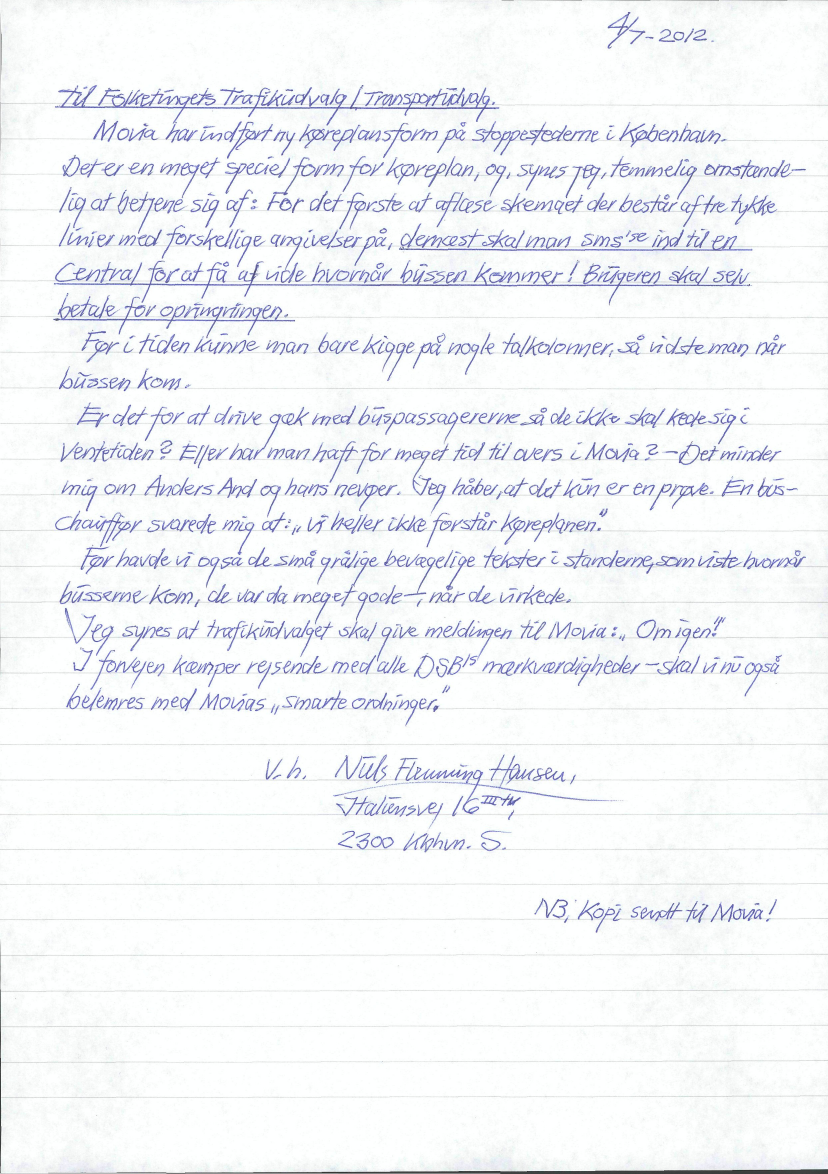 4/7-2012.
Til Folketingets Trafikudvalg / Transportudvalg.
Movia har indført ny køreplansform på stoppestederne i København.
Det er en meget speciel form for køreplan, og, synes jeg, temmelig omstænde-
lig at betjene sig af: For det første at aflæse skemaet der består af tre tykke
linier med forskellige angivelser på, dernæst skal man sms'se ind til en
Central for at få at vide hvornår bussen kommer! Brugeren skal selv
betale for opringningen.
Før i tiden kunne man bare kigge på nogle talkolonner, så vidste man når
bussen kom.
Er det for at drive gæk med buspassagererne så de ikke skal kede sig i
Ventetiden? Eller har man haft for meget tid til overs i Movia? - Det minder
mig om Anders And og hans nevøer. Jeg håber, at det kun er en prøve. En bus-
Chauffør svarede mig at: „Vi heller ikke forstår køreplanen."
Før havde vi også de små grålige bevægelige tekster i standerne, som viste hvornår
busserne kom, de var da meget gode -, når de virkede.
Jeg synes at trafikudvalget skal give meldingen til Movia: „Om igen!"
I forvejen kæmper rejsende med alle DSB's mærkværdigheder - skal vi nu også
belemres med Movias „smarte ordninger."
V.h. Niels Flemming Hansen,
Italiensvej 16 III th,
2300 Kbhvn. S.
NB; Kopi sendt til Movia!